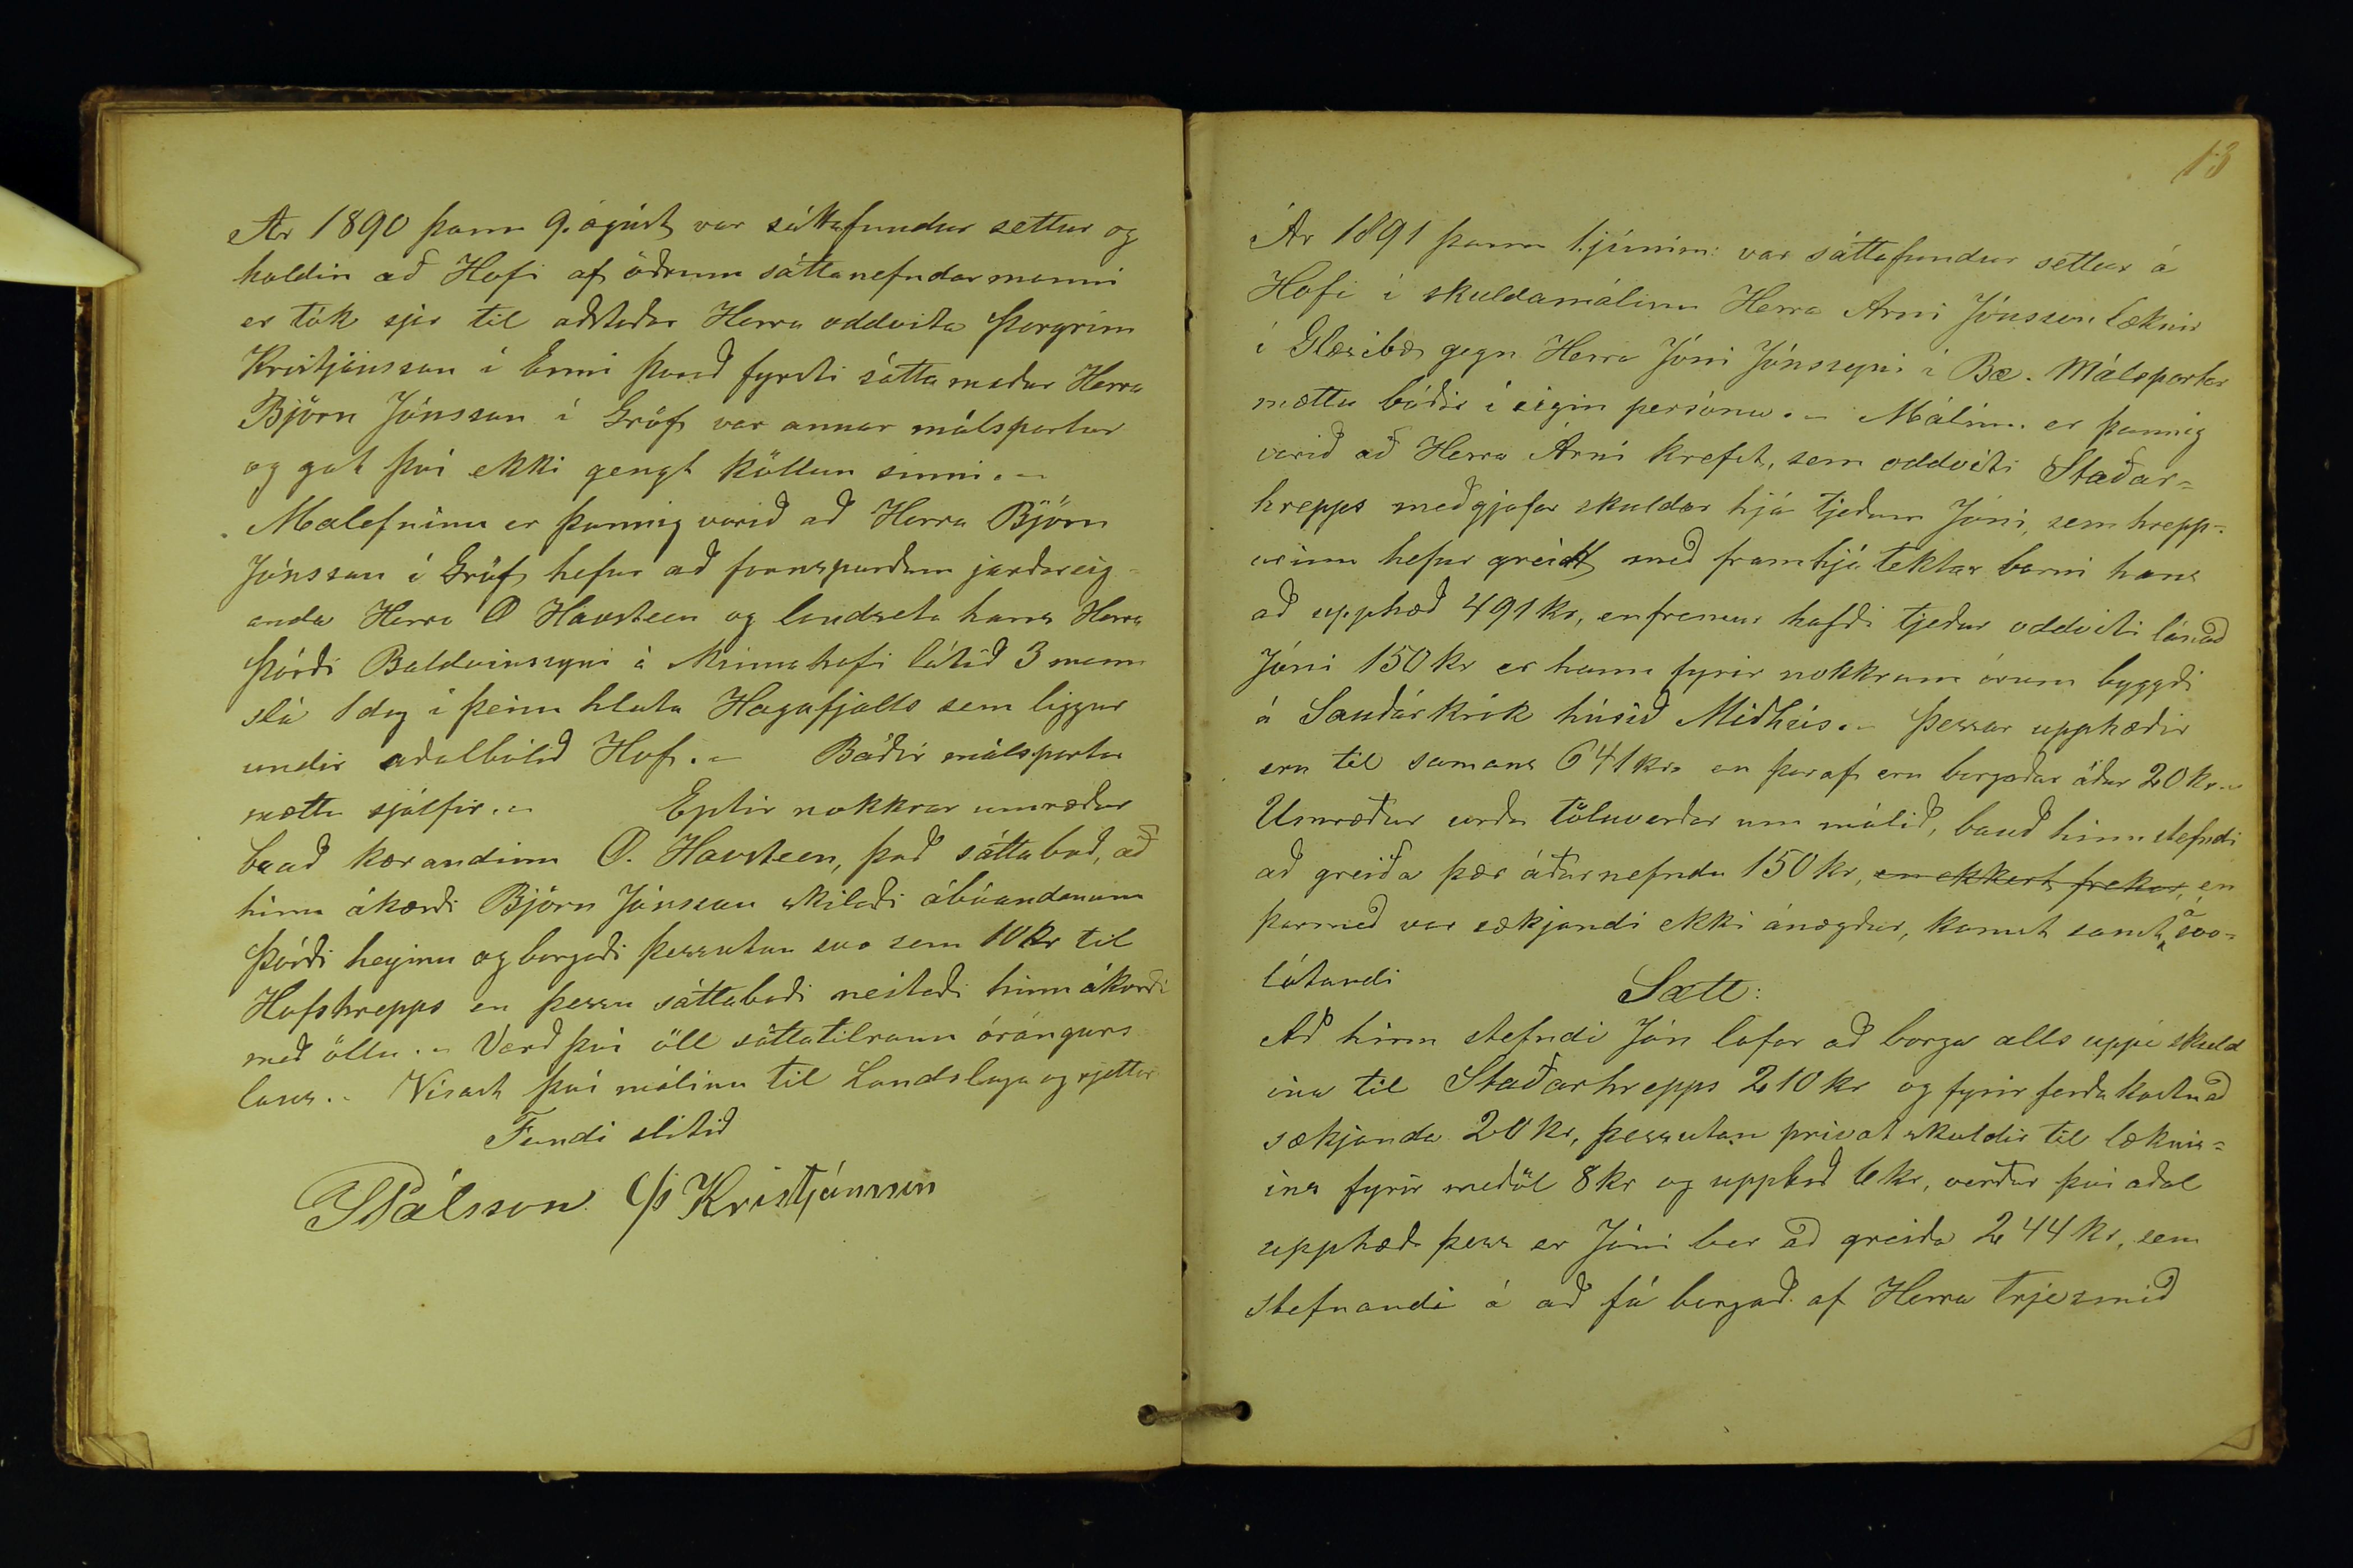 Ár 1890 þann 9. ágúst var sáttafundur settur og
haldin að Hofi af öðrum sáttanefndarmanni
er tók sjer til aðstoðar Herra oddvita Þorgrím
Kristjánsson í Enni það fyrsti sáttamaður Herra
Björn Jónsson í Gröf var annar málspartur
og gat því ekki gengt köllun sinni.-
Málefninu er þannig varið að Herra Björn
Jónsson í Gröf hefur að fornspurðum jarðareig-
anda Herra O Havsteen og landseta hans Herra
Þórði Baldvinssyni á Minnahofi látið 3 menn
slá 1 dag í þeim hluta Hagafjalls sem liggur
undir aðalbólið Hof.- Báðir málspartar
mættu sjálfir.- Eptir nokkrar umræður
bauð kærandinn O. Havsteen, það sáttaboð, að
hinn ákærði Björn Jónsson skilaði ábúandanum
Þórði heyinu og borgaði þessutan svo sem 10 kr til
Hofshrepps en þessu sáttaboði neitaði hinn ákærði
með öllu.- Varð því öll sáttatilraun árángurs
laus.- Vísast því málinu til Landslaga og rjettar
Fundi slitið
SPálsson. Þ Kristjánsson
13
Ár 1891 þann 1. júním: var sáttafundur settur á
Hofi í skuldamálinu Herra Árni Jónsson læknir
í Glæsibæ gegn Herra Jóni Jónssyni í Bæ. Málspartar
mættu báðir í eigin persónu.- Málinu er þannig
varið að Herra Árni krefst, sem oddviti Staðar=
hrepps meðgjafar skuldar hjá tjeðum Jóni, sem hrepp-
urinn hefur greidt með framhjá tektar barni hans
að upphæð 491 kr, enfremur hafði tjeður oddviti lánað
Jóni 150 kr er hann fyrir nokkrum árum byggði
á Sauðárkrók húsið Miðhús.- Þessar upphæðir
eru til samans 641 kr en þar af eru borgaðar áður 20 kr.-
Umræður urðu töluverðar um málið, bauð hinn stefndi
að greiða þær áðurnefndu 150 kr, en ekkert frekar, en
þarmeð var sækjandi ekki ánægður, komst samt á svo=
látandi
Sætt:
Að hinn stefndi Jón lofar að borga alls uppí skuld
ina til Staðarhrepps 210 kr og fyrir ferðakostnað
sækjanda 20 kr, þessutan privat skuldir til læknis=
ins fyrir meðöl 8 kr og uppboð 6 kr, verður því aðal
upphæð þess er Jóni ber að greiða 244 kr, sem
stefnandi á að fá borgað af Herra Trjesmið